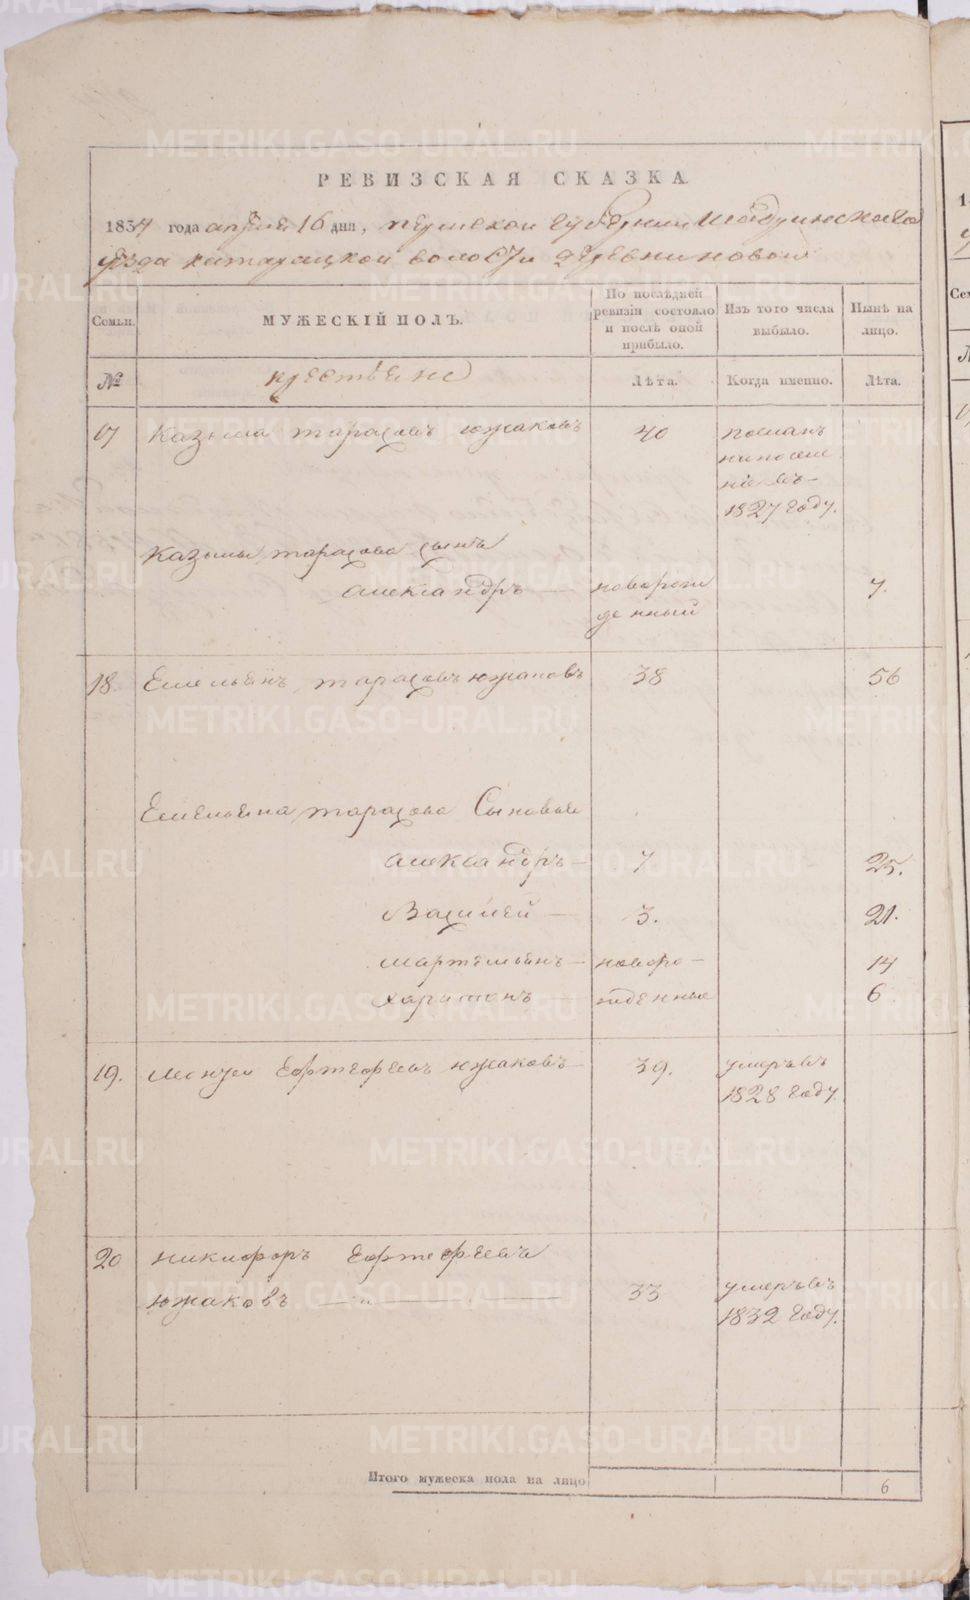 РЕВИЗСКАЯ СКАЗКА
1834 года апреля 16 дня, пермской губернии Шадринскаго
уезда катарацкой волости деревни новой
Семьи. МУЖЕСКІЙ ПОЛЪ. По послѣдней ревизіи состояло и послѣ оной прибыло. Изъ того числа выбыло. Нынѣ на лицо.
№ крестьяне Лѣта. Когда именно. Лѣта.
17 Казьма тарасовъ южаковъ 40 посланъ
на поселе
ніе въ
1827 году.
Казьмы тарасова сынъ
александръ — новорож 7.
денный
18. Емельянъ тарасовъ южаковъ 38 56
Емельяна тарасова Сыновья
александръ — 7 25.
Василей — 3. 21.
мартемьянъ — новоро — 14
харитонъ — жденные 6
19. южаковъ — 39. умеръ въ
1828 году.
20 никифоръ
южаковъ — „ — 33 умеръ въ
1832 году.
Итого мужеска пола на лицо 6
METRIKI.GASO-URAL.RU